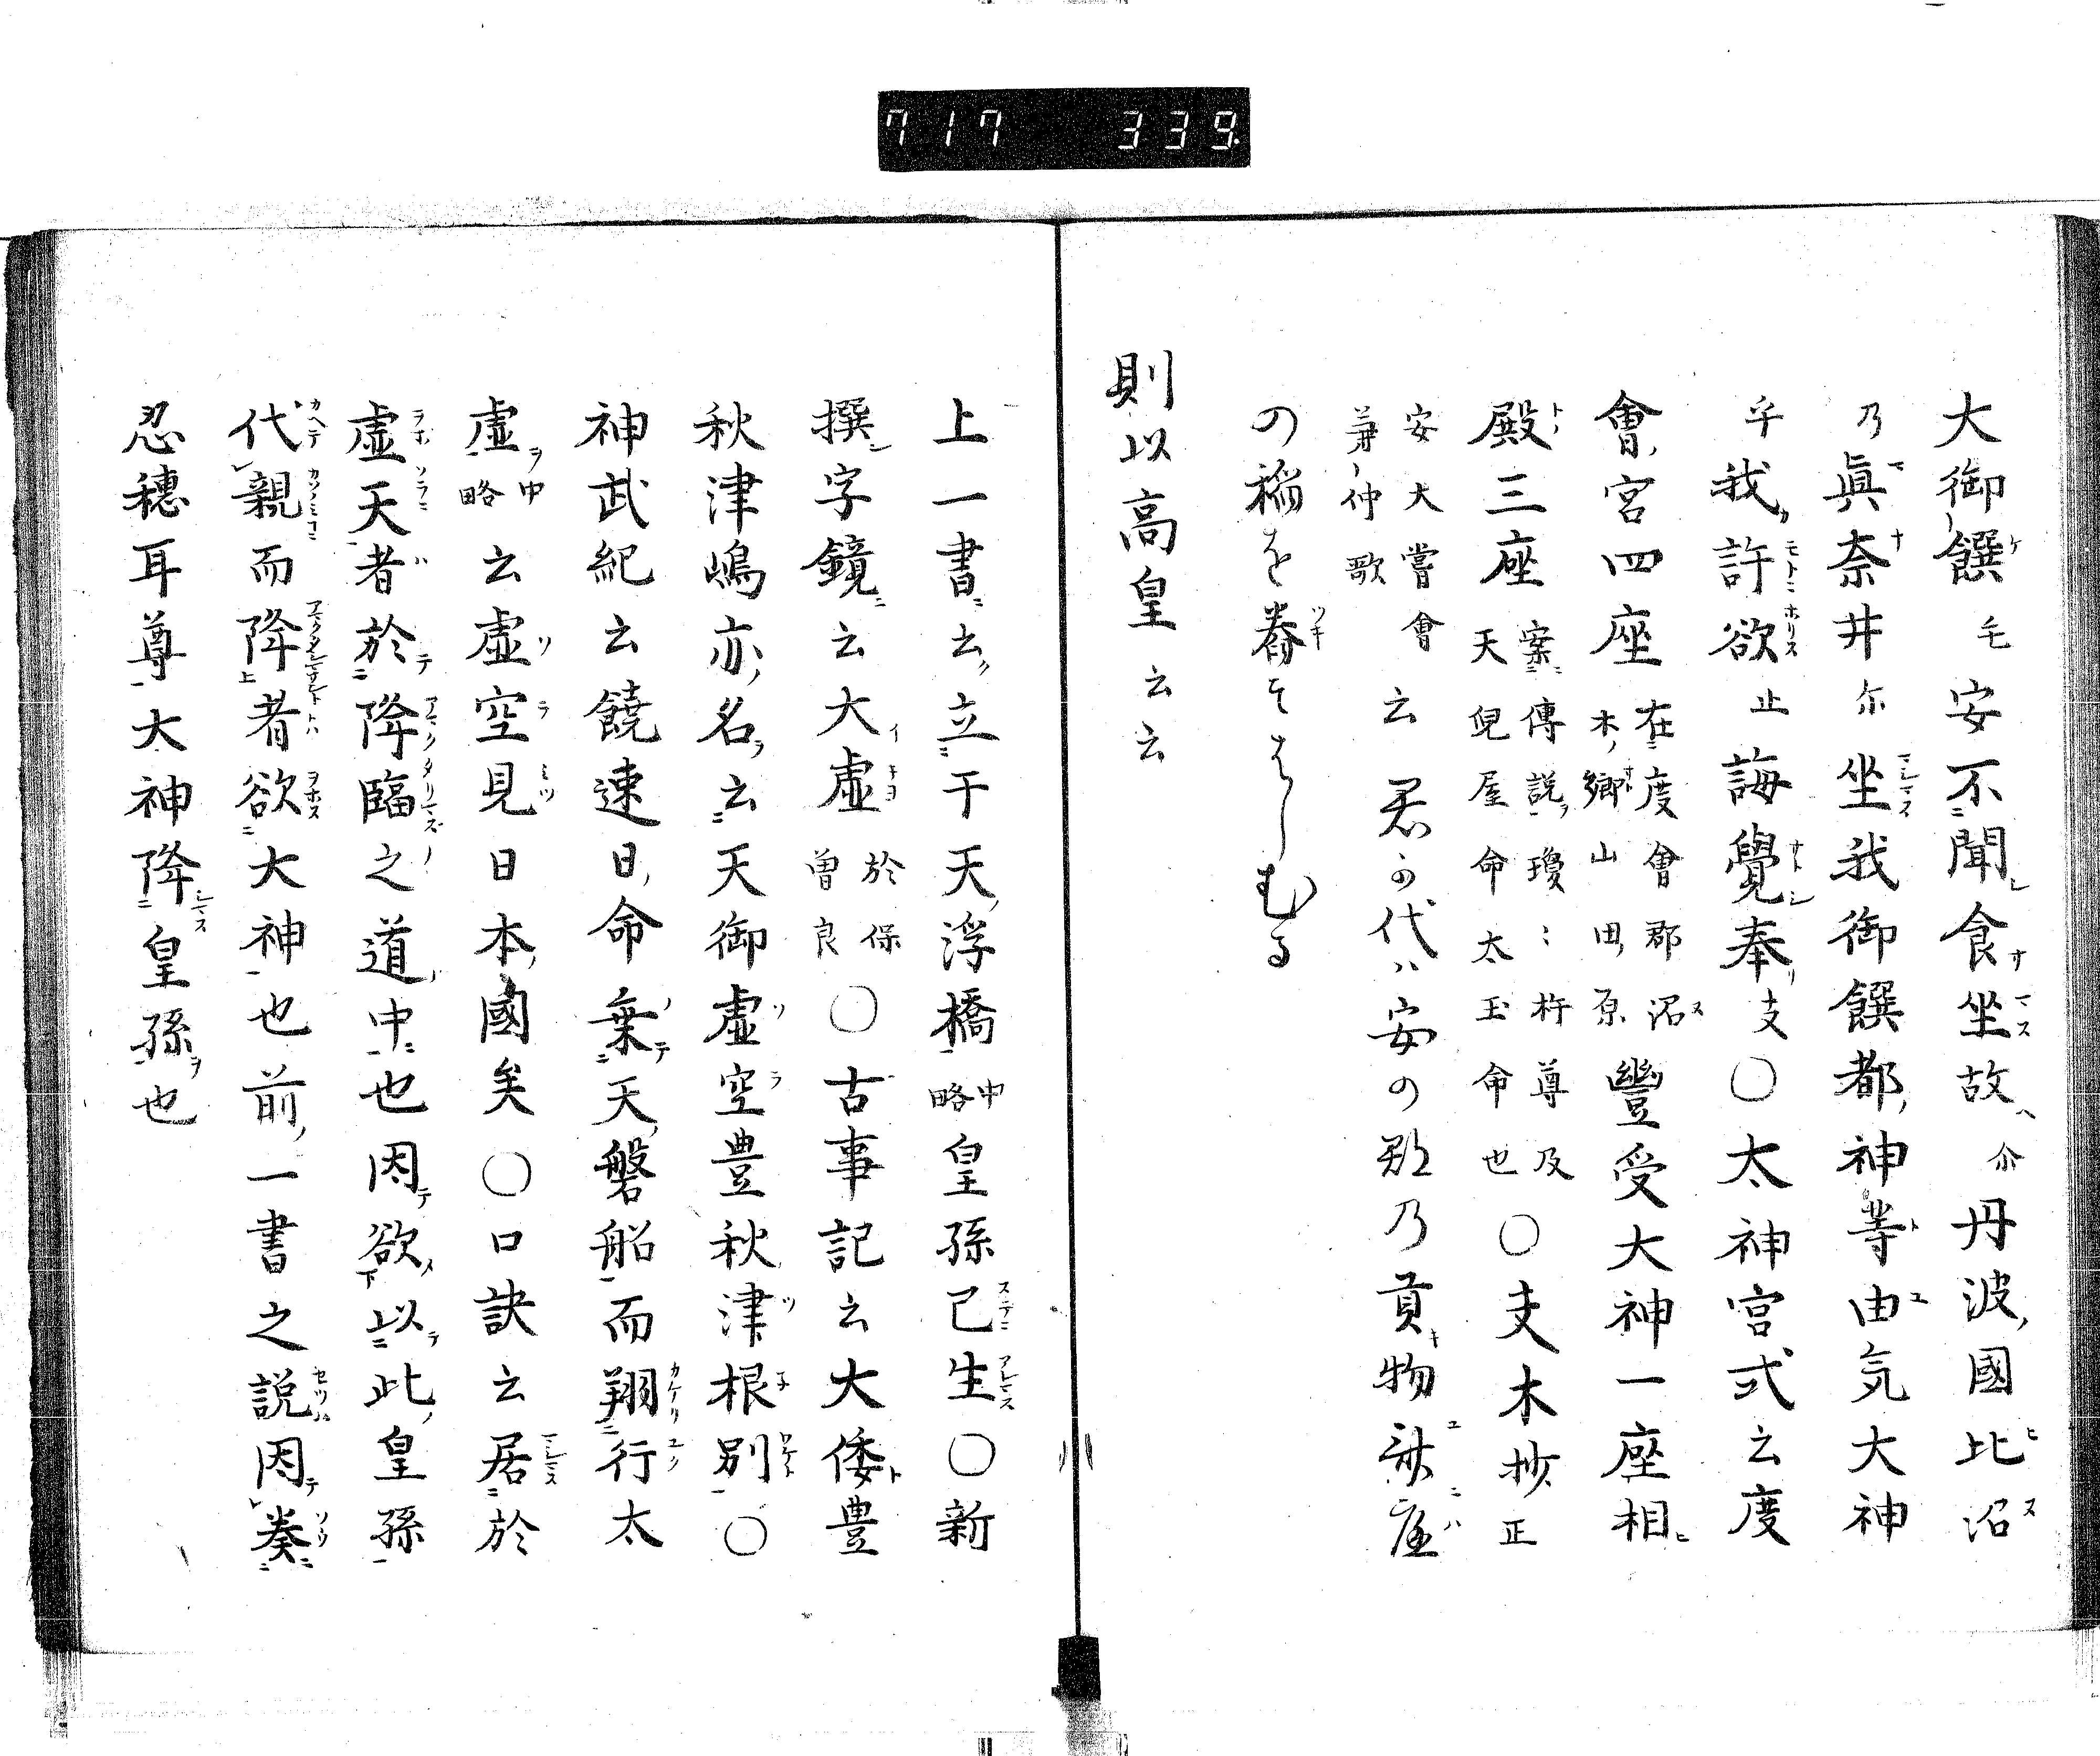 717 339
大御饌毛安不聞食坐故尓丹波國比沼
乃眞奈井尓坐我御饌都神等由気大神
乎我許欲止誨覺奉支〇太神宮式云度
會宮四座在度會郡沼木郷山田原豐受大神一座相
殿三座案傳説瓊〻杵尊及天兒屋命太玉命也〇夫木抄正
安大嘗會兼仲歌云君か代ハ安の郡乃貢物
の稲を舂そはしむる
則以高皇云云
上一書云立于天浮橋中略皇孫已生〇新
撰字鏡云大虚於保曽良〇古事記云大倭豊
秋津嶋亦名云天御虚空豊秋津根別〇
神武紀云饒速日命乗天磐船而翔行太
虚中略云虚空見日本國矣〇口訣云居於
虚天者於降臨之道中也因欲以此皇孫
代親而降者欲大神也前一書之説因奏
忍穗耳尊大神降皇孫也